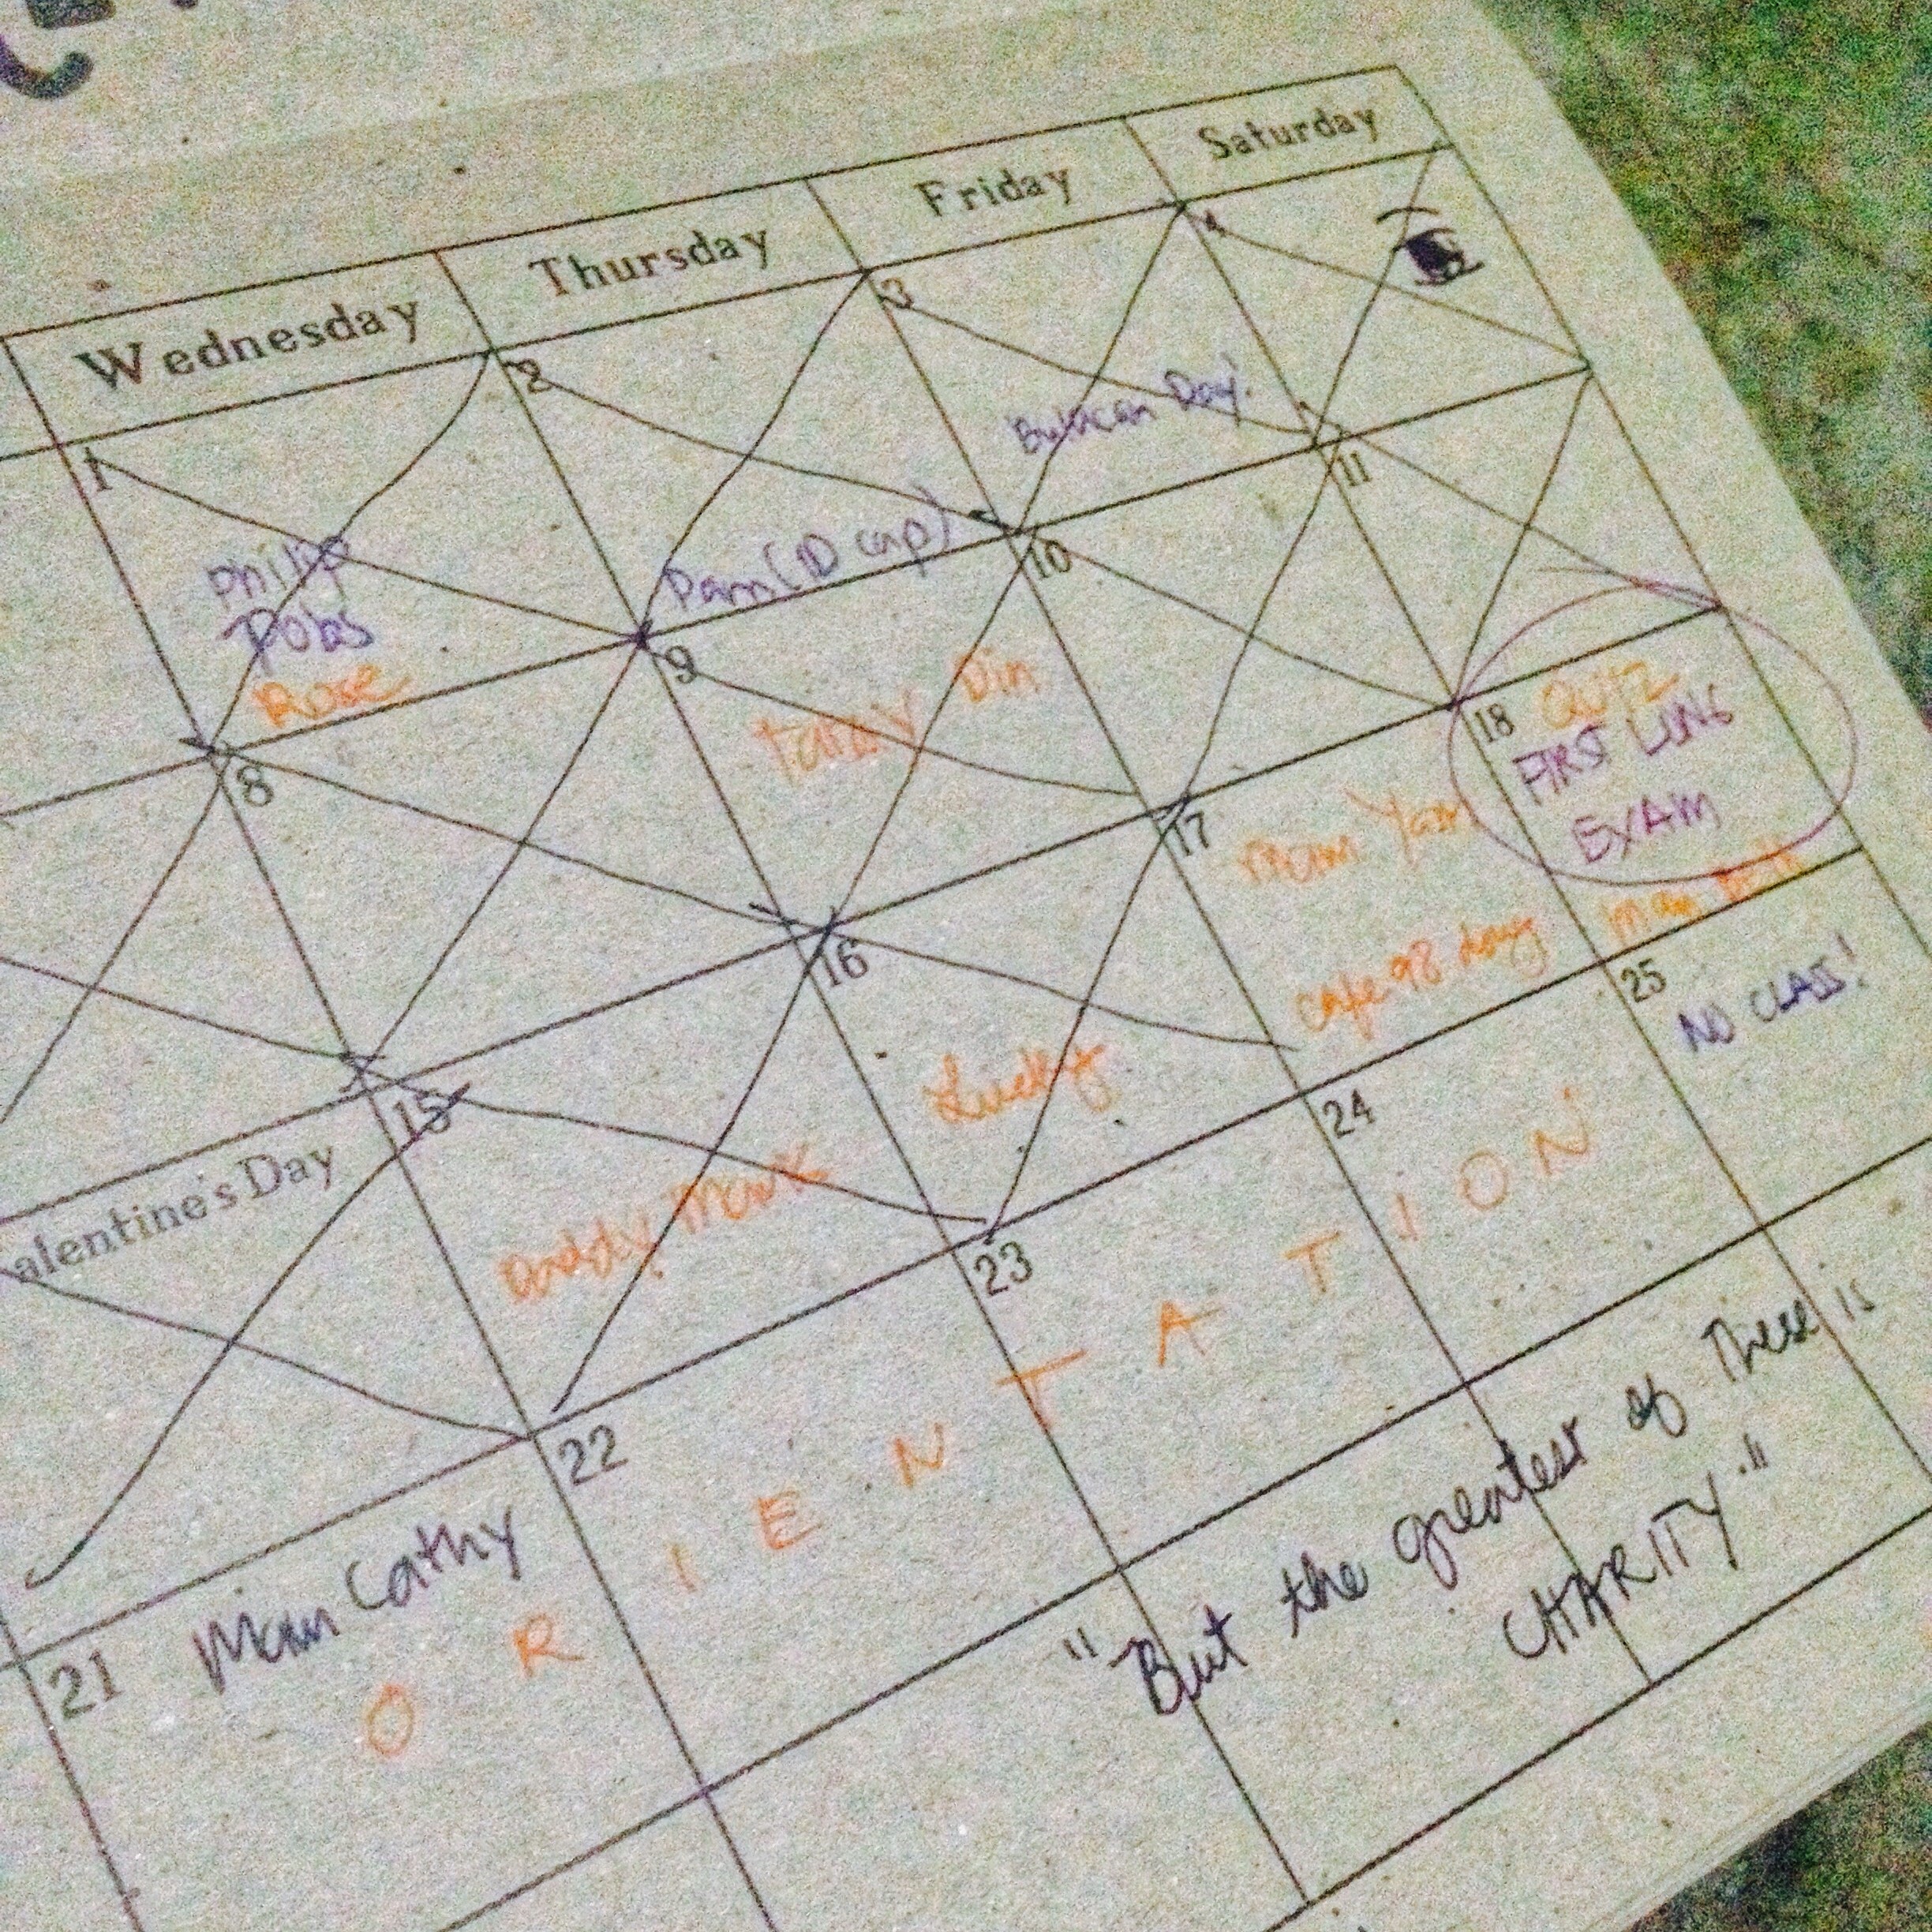 Wednesday Thursday Friday Saturday
1
Philip
Pobs
Rose
2
Pam (ID cap)
3
Bulacan Day!
4
8
9
Din
10
11
alentine's Day
15
Daddy Mark
16
Lucky
17
Mam Yam
cafe 98 day
18
QUIZ
FIRST LING
EXAM
Mam
21
Mam Cathy
22
23
24
ORIENTATION
25
NO CLASS!
"But the greatest of These is
CHARITY."